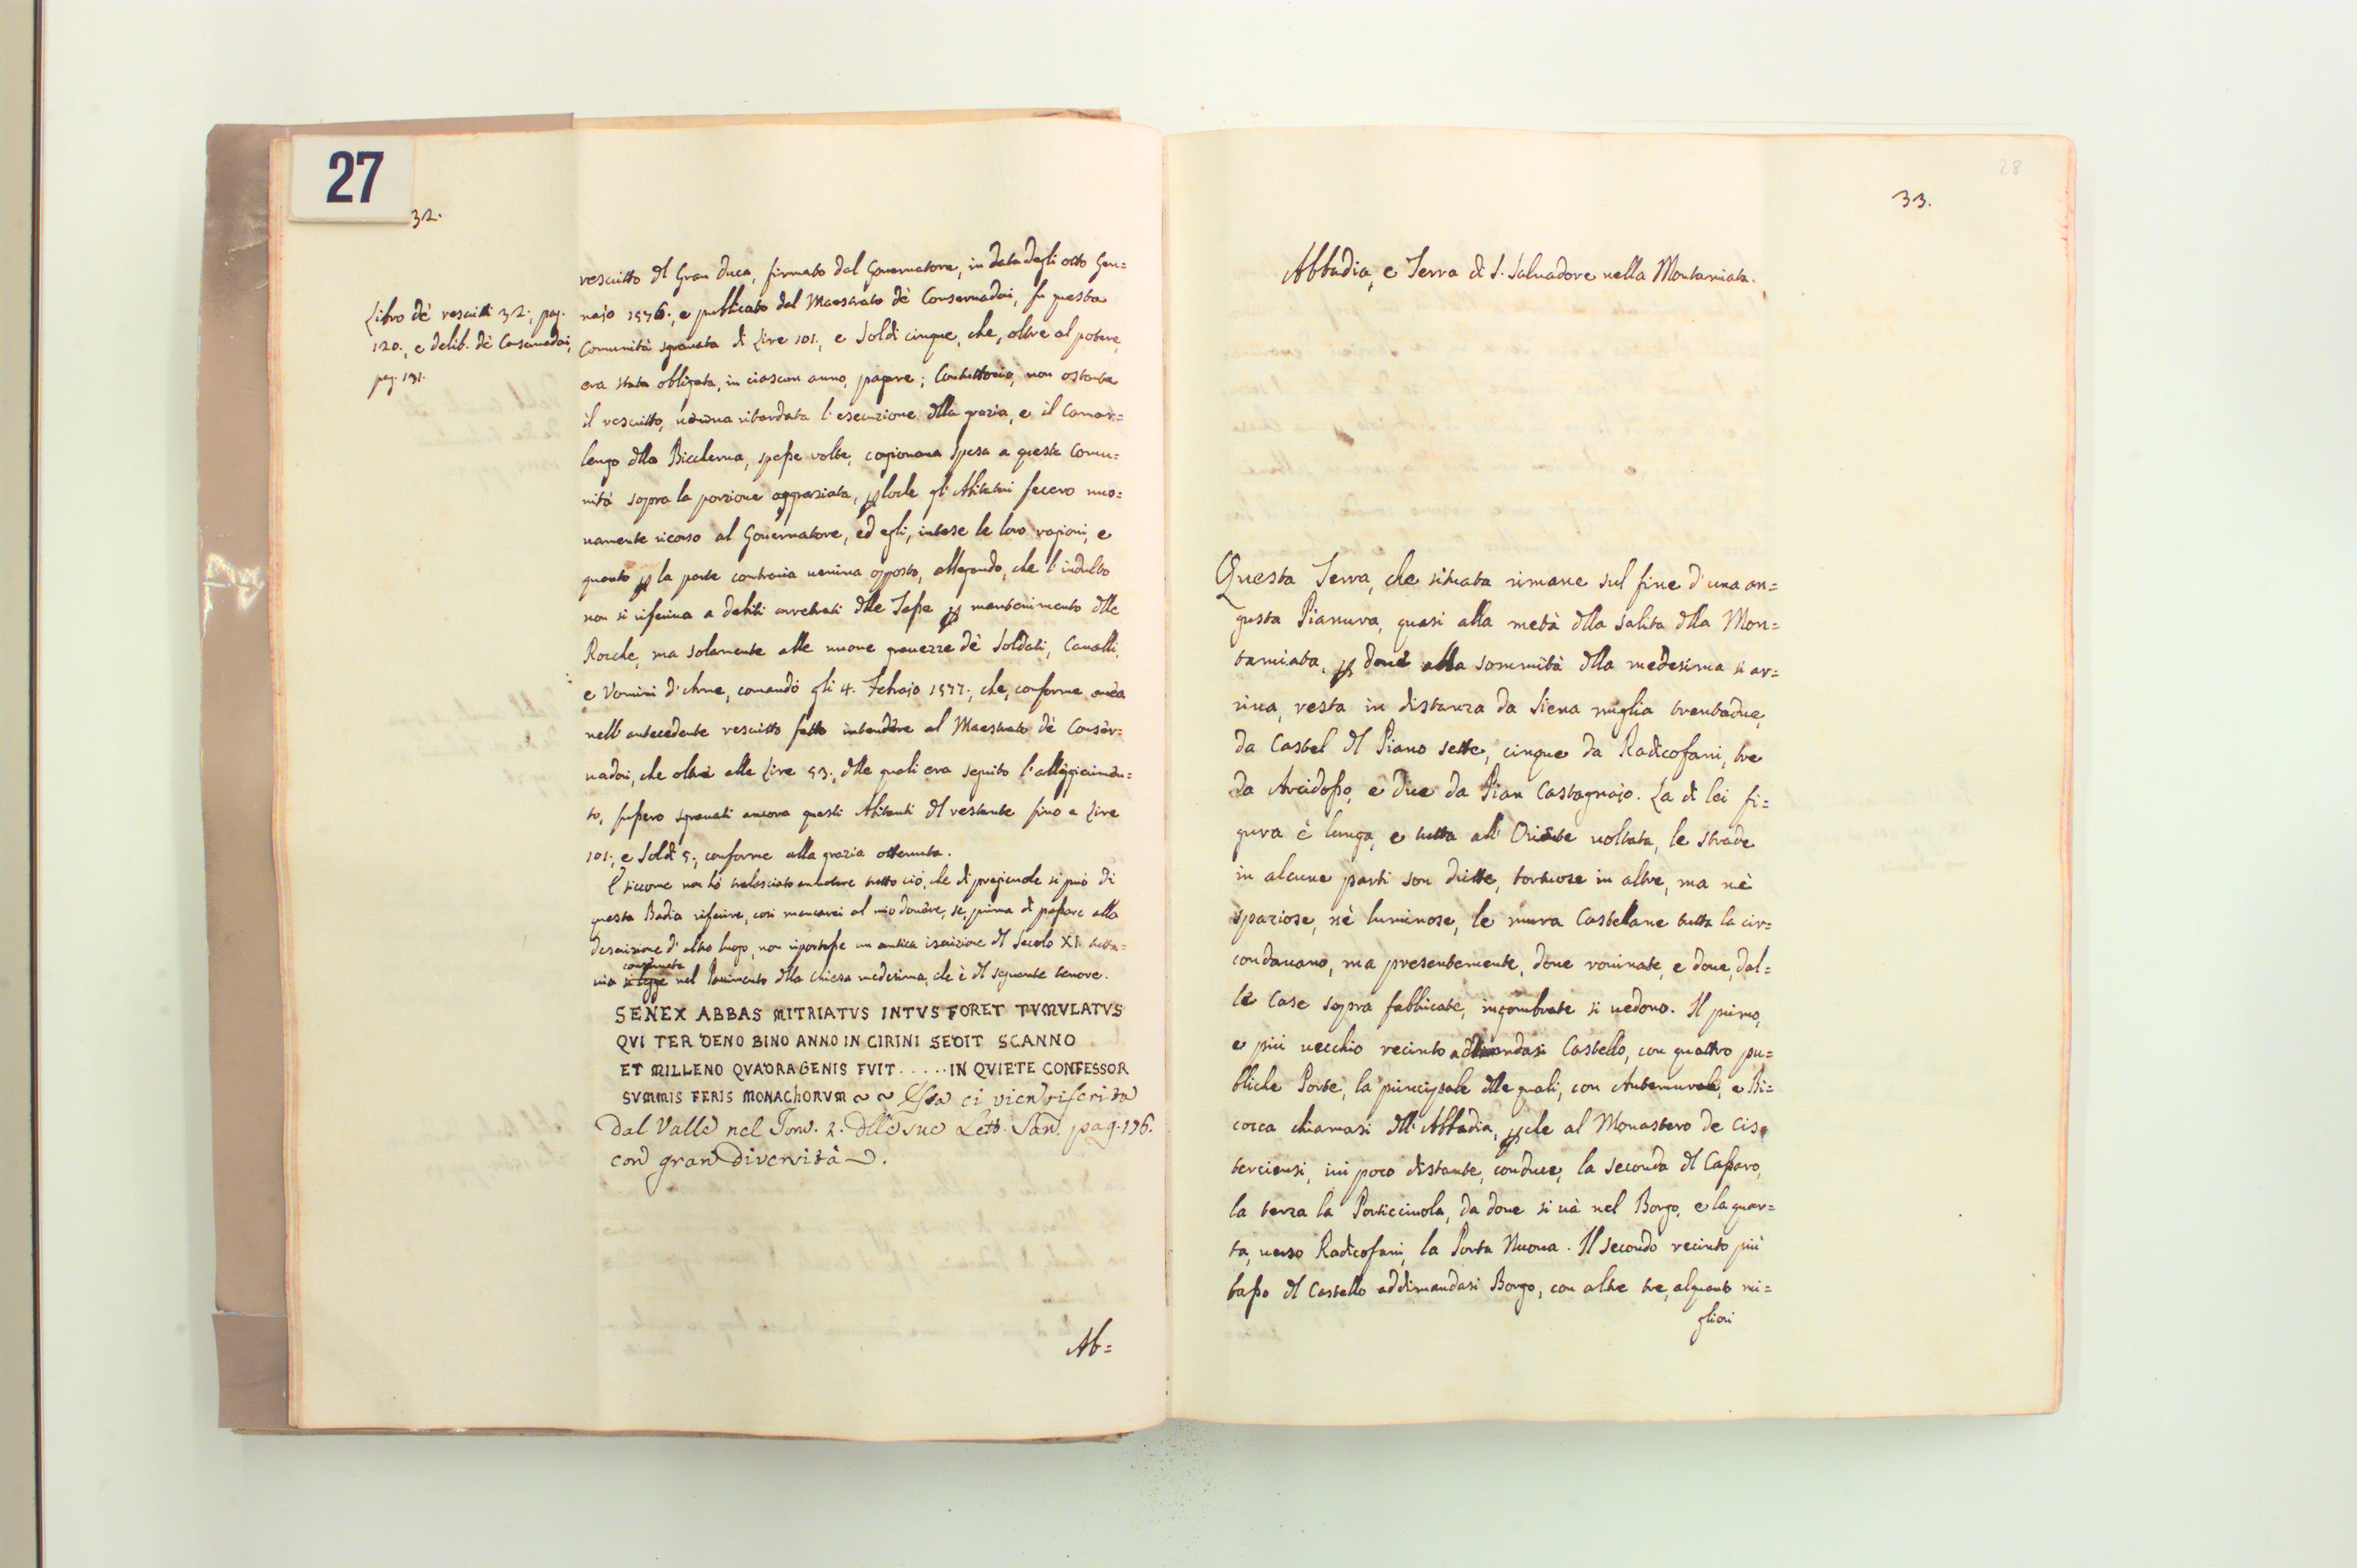 27
32.
Libro de' rescritti 32., pag.
120., e delib. de' Conservadori,
pag. 191.
rescritto dl Gran Duca, firmato dal Governatore, in data degli otto Gen=
najo 1576., e pubblicato dal Maestrato de' Conservadori, fu questa
Comunità sgravata di Lire 101., e Soldi cinque, che, oltre al potere,
era stata obligata, in ciascun anno, pagare; Contuttocio, non ostante
il rescritto, veniva ritardata l'esecuzione dlla grazia, e il Camar=
lengo dlla Biccherna, spesse volte, cagionava spesa a questa Comu=
nità sopra la porzione aggraziata, ploche gli Abitatori fecero nuo=
vamente ricorso al Governatore, ed egli, intese le loro ragioni, e
quanto p la parte contraria veniva opposto, allegando, che l'indulto
non si riferiva a debiti arretrati dlle Tasse p mantenimento dlle
Rocche, ma solamente alle nuove gravezze de' Soldati, Cavalli,
e Vomini d'Arme, comandò gli 4. Febrajo 1577., che, conforme avea
nell'antecedente rescritto fatto intendere al Maestrato de' Conser=
vadori, che oltre alle Lire 53., dlle quali era seguito l'alleggerimen=
to, fussero sgravati ancora questi Abitanti dl restante fino a Lire
101., e Soldi 5., conforme alla grazia ottenuta.
E siccome non hò tralasciato annotare tutto ciò, che di pregievole si può di
questa Badia riferire, così mancarei al mio dovere, se, prima di passare alla
descrizione d'altro luogo, non riportasse un antica iscrizione dl Secolo XI. tutta=
conservata
via si legge nel Pavimento dlla Chiesa medesima, che è dl seguente tenore.
SENEX ABBAS MITRIATVS INTVS FORET TVMVLATVS
QVI TER DENO BINO ANNO IN CIRINI SEDIT SCANNO
ET MILLENO QVADRAGENIS FVIT ..... IN QVIETE CONFESSOR
SVMMIS FERIS MONAChORVM ~ ~ Essa ci vien riferita
Dal Valle nel Tom. 2. dlle sue Lett. San. pag. 196.
con gran diversità.
Ab=
28
33.
Abbadia, e Terra di S. Salvadore nella Montamiata.
Questa Terra, che situata rimane sul fine d'una an=
gusta Pianura, quasi alla metà dlla salita dlla Mon=
tamiata, p dove alla sommità dlla medesima si ar=
riva, resta in distanza da Siena miglia trentadue,
da Castel dl Piano sette, cinque da Radicofani, tre
da Arcidosso, e due da Pian Castagnajo. La di lei fi=
gura è lunga, e tutta all'Oriente voltata, le strade
in alcune parti son diritte, tortuose in altre, ma nè
spaziose, nè luminose, le mura Castellane tutta la cir=
condavano, ma presentemente, dove rovinate, e dove, dal=
le Case sopra fabbricate, ingombrate si vedono. Il primo,
e più vecchio recinto addimandasi Castello, con quattro pu=
bliche Porte, la principale dlle quali, con Antemurale, e Bi=
cocca chiamasi dll'Abbadia, pche al Monastero de Cis=
terciensi, ivi poco distante, conduce, la seconda dl Cassaro,
la terza la Porticciuola, da dove si và nel Borgo, e la quar=
ta, verso Radicofani, la Porta Nuova. Il secondo recinto più
basso dl Castello addimandasi Borgo, con altre tre, alquanto mi=
gliori